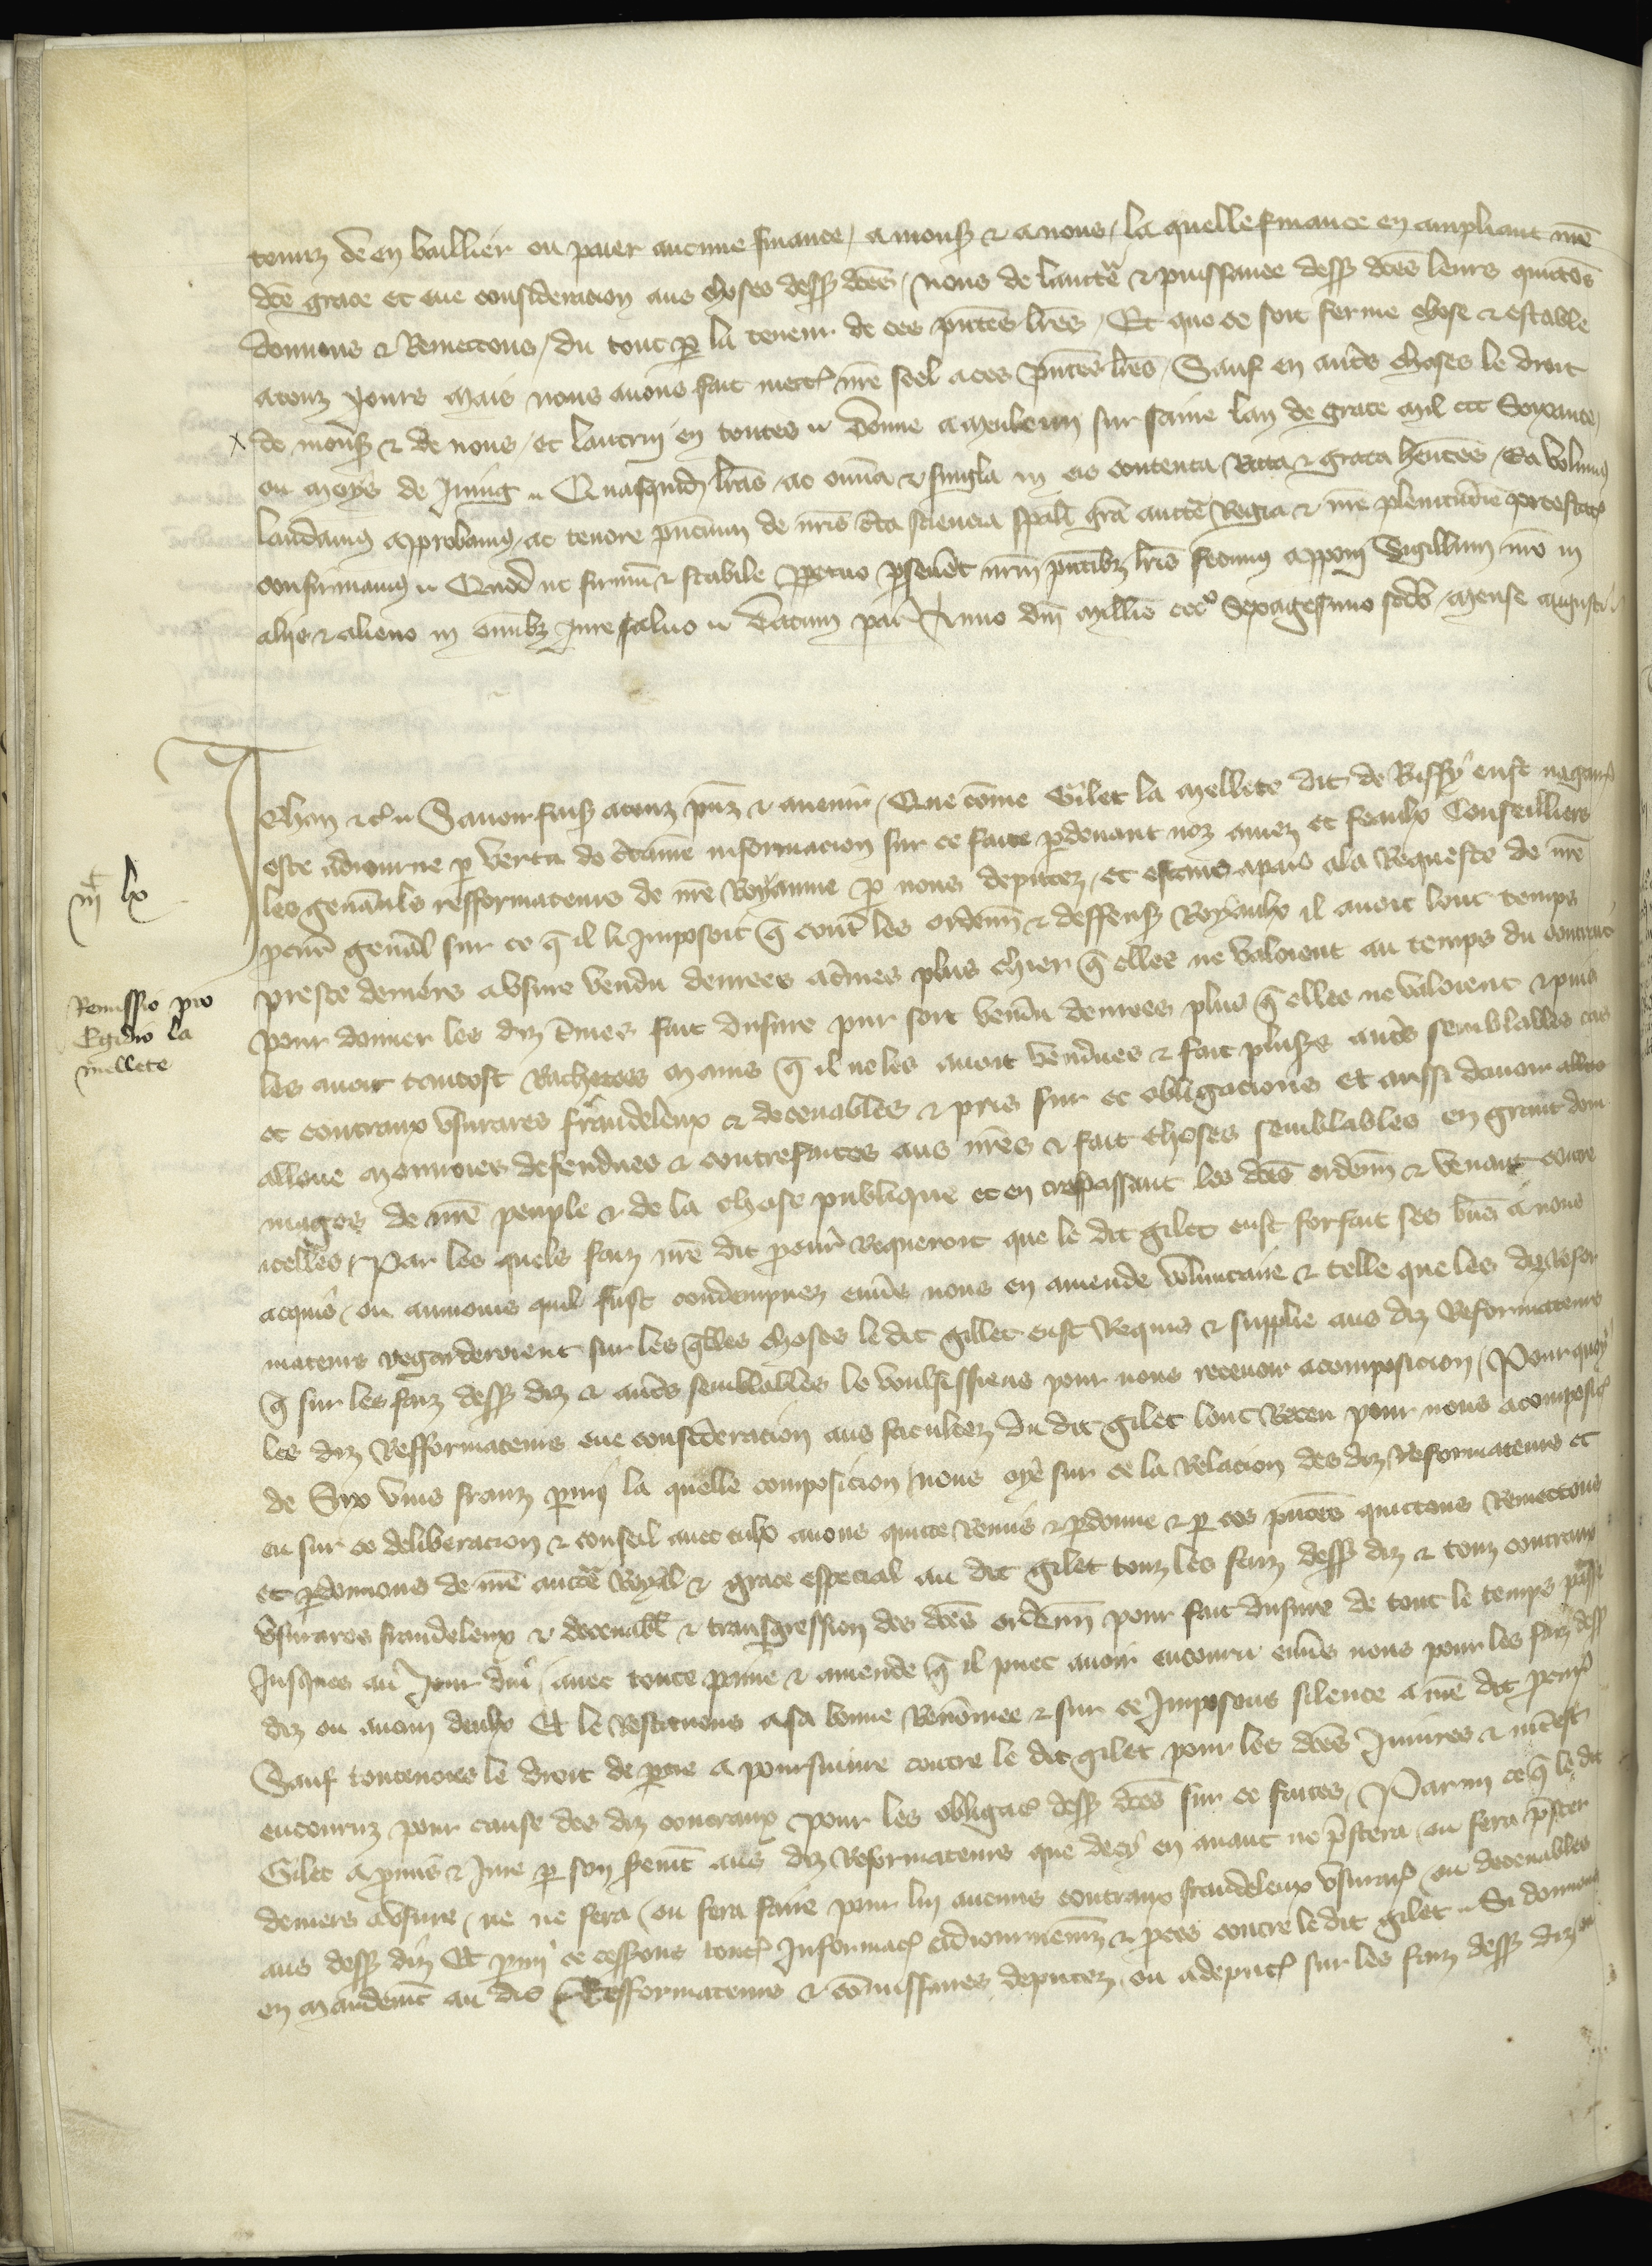 tenuz den en baillier ou paier aucune finance / a mons & a nous / la quelle finance en ampliant nre
dce grace et eue consideracion aus choses dess dces / nous de lauctē & puissance dess dces leurs quictōs
donnons & Remectons / du tout p la teneur de ces pntes lres / Et que ce soit ferme chose & estable
a touz iours mais nous auons fait mectr nre scel a ces pntes lres / Sauf en autrs choses le droit
de mons & de nous / et lautruy en toutes Donne a Meuleun sur saine lan de grace mil ccc Soixante
ou moys de Juing Quasquid lras ac omia & singla in eis contenta Rata & grata hentes / Ea volum
laudam approbam / ac tenore pncium de nris cta sciencia spali gra aucte Regia & nre plenitudie potestat
confirmam Quod ut firmu & stabile ppetuo pseuet nrm pntibz lris fecim apponi Sigillum nro in
aliis & alieno in omibz iure saluo Datum par Anno dni Millio ccc Sexagesimo scdo / mense augusti
Jehan &c Sauoir fais a touz pnz & auenir / Que come Gilet la mellete dit de Bussy eust nagair
este adiourne p vertu de ctaine informacion sur ce faite pdeuant noz amez et feaulx Conseilliers
les genaulx refformateurs de nre Royaume p nous deputez / et estaus apais ala Requeste de nre
pcur genal sur ce q il li Imposoit q cont les ordenn & deffens Royaulx il auoit lont temps
preste deniers a usure vendu denrees a times plus chier q elles ne valoient au temps du contract
pour donner les diz times fait dusure pur sort vendu denrees plus q elles ne valoient & puis
les auoir tantost Rachetees mains q il ne les auoit vendues & fait pluss autrs semblables cas
et contraux usuraires fraudeleux & deceuables & pris sur ce obligacions et aussi dauoir alloue
alloue monnoies defendues & contrefaites aus nres & fait choses semblables en grant dom
mages de nre peuple & de la chose publique et en trespassant les dces ordenn & venant contre
icelles / Par les quels faiz nre dit pcur Requeroit que le dit gilet eust forfait ses biens a nous
acquis / ou aumoins quil fust condempnez enuers nous en amende voluntaire & telle que les diz Refor
mateurs regarderoient sur les qlles choses le dit gillet eust Requis & supplie aus diz Reformateurs
q sur les faiz dess diz & autrs semblables le voulsissiens pour nous receuoir acomposicion / Pourquoy
les diz Refformateurs eue consideracion aus facultez du dit gilet lont Receu pour nous acomposic
de Six vins frans pmy la quelle composicion / nous oye sur ce la Relacion des diz Reformateurs et
eu sur ce deliberacion & conseil auec eulx auons quitte Remis & pdonne & p ces pntes quictons Remectons
et pdonnons de nre aucte Royal & grace especial au dit gilet touz les faiz dess diz & touz contraux
usuraires fraudeleux & deceuabl & transgression des dces ordenn pour fait dusure de tout le temps passe
Jusques au Jour duy / auec toute paine & amende q il puet auoir encouru enuers nous pour les faiz dess
diz ou aucun deulx Et le restituons a sa bonne Renomee & sur ce Imposons silence a nre dit pcur
Sauf toutevoies le droit de ptie a poursuiure contre le dit gilet pour les dces Iniures & intest
encouruz pour cause des diz contraux pour les obligac dess dces sur ce faites / Parmi ce q le dit
Gilet a pmis & Jure p son serment aus diz Reformateurs que de cy en auant ne pstera / ou fera pster
deniers a usure / ne ne fera / ou fera faire pour lui aucuns contraux fraudeleux usurair / ou deceuables
aus dess diz Et pmy ce cessons tout Informac adiournemen & pces contre le dit gilet Si donnons
en mandement au dis Refformateurs & comissaires deputez / ou a deput sur les faiz dess diz / ou
iijc lx
Remissio pro
Egidio la
mellete